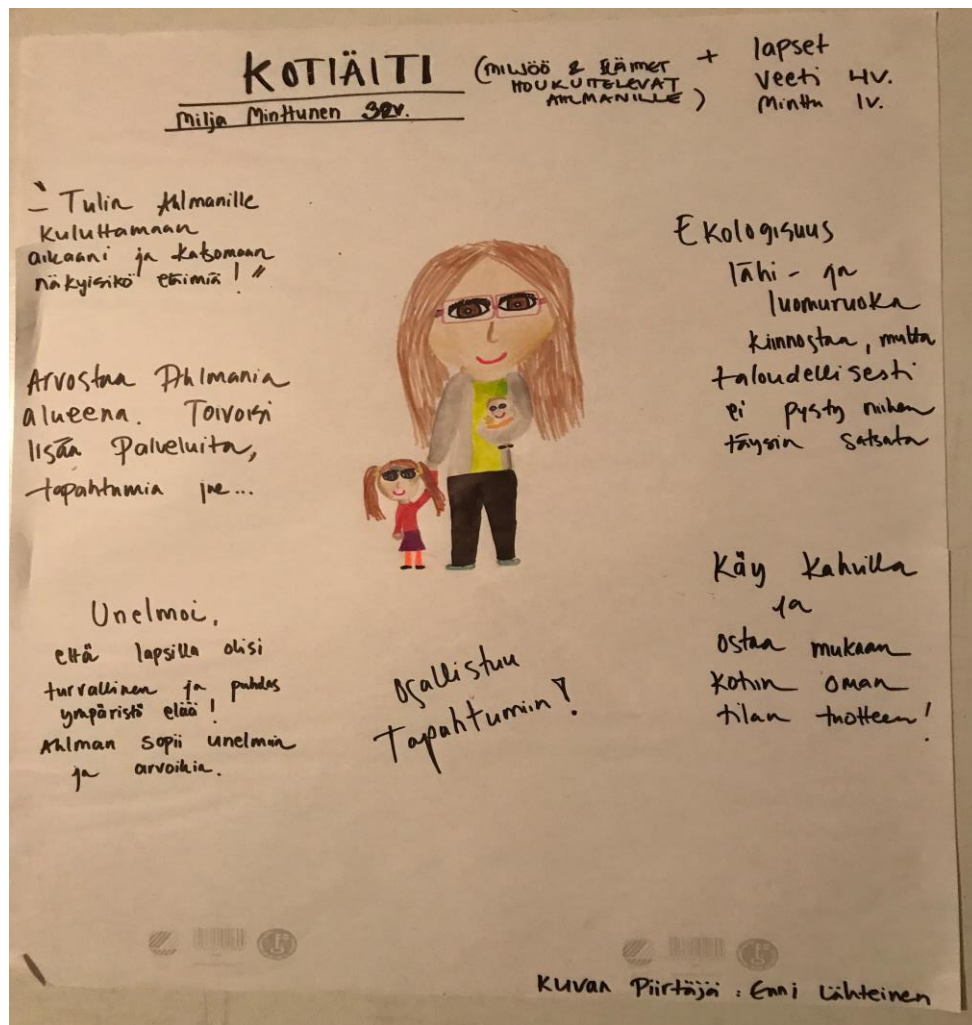 KOTIÄITI
Milja Minttunen 32v.
(MILJÖÖ & ELÄIMET
HOUKUTTELEVAT
AHLMANILLE)
+ lapset
Veeti 4v.
Minttu 1v.
Tulin Ahlmanille
kuluttamaan
aikaani ja katsomaan
näkyisikö eläimiä!"
Arvostaa Ahlmania
alueena. Toivoisi
lisää palveluita,
tapahtumia jne...
Unelmoi,
että lapsilla olisi
turvallinen ja puhdas
ympäristö elää!
Ahlman sopii unelmiin
ja arvoihin.
Osallistuu
tapahtumiin!
Ekologisuus
lähi- ja
luomuruoka
kiinnostaa, mutta
taloudellisesti
ei pysty niihen
täysin satsata
Käy kahvilla
ja
ostaa mukaan
kotiin oman
tilan tuotteen!
Kuvan Piirtäjä: Enni Lähteinen